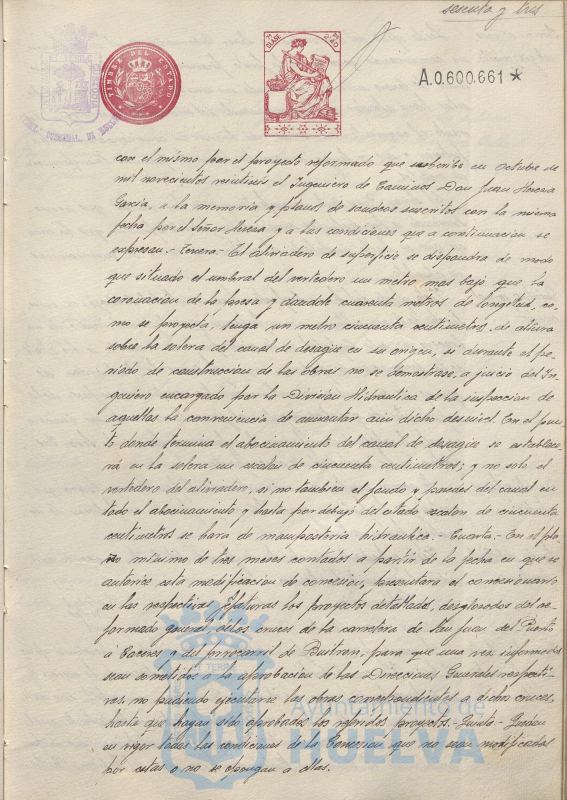 sesenta y tres
TIMBRE DEL ESTADO
CLASE
A.0.600.661*
con el mismo por el proyecto reformado que suscribió en Octubre de
mil novecientos veintiseis el Ingeniero de Caminos Don Juan Herrera
García, a la memoria y planos de sondeos suscritos con la misma
fecha por el Señor Herrera y a las condiciones que a continuacion se
expresan.- Tercera.- El aliviadero de superficie se dispondra de modo
que situado el umbral del vertedero un metro mas bajo que la
coronacion de la presa y dandole cuarenta metros de longitud, co-
mo se proyecta, tenga un metro cincuenta centimetros, de altura
sobre la solera del canal de desagüe en su origen, si durante el pe-
riodo de construccion de las obras no se demostrase, a juicio del In-
geniero encargado por la Division Hidraulica de la inspeccion de
aquellas la conveniencia de aumentar aun dicho desnivel. En el pun-
to donde termina el abocinamiento del canal de desagüe se establece-
rá en la solera un escalon de cincuenta centimetros; y no solo el
vertedero del aliviadero, si no tambien el fondo y paredes del canal en
todo el abocinamiento y hasta por debajo del citado escalon de cincuenta
centimetros se hara de mamposteria hidraulica.- Cuarta.- En el pla-
zo minimo de tres meses contados a partir de la fecha en que se
autorice esta modificacion de concesion, presentará el concesionario
en las respectivas Jefaturas los proyectos detallados, desglosados del re-
formado general, de los cruces de la carretera de San Juan del Puerto
a Caceres y del ferrocarril de Buitron, para que una vez informados
sean sometidos a la aprobacion de las Direcciones Generales respecti-
vas, no pudiendo ejecutarse las obras correspondientes a dichos cruces,
hasta que hayan sido aprobados los referidos proyectos.- Quinta.- Quedan
en vigor todas las condiciones de la Concesion que no sean modificadas
por estas o no se opongan a ellas.
Ayuntamiento de
HUELVA